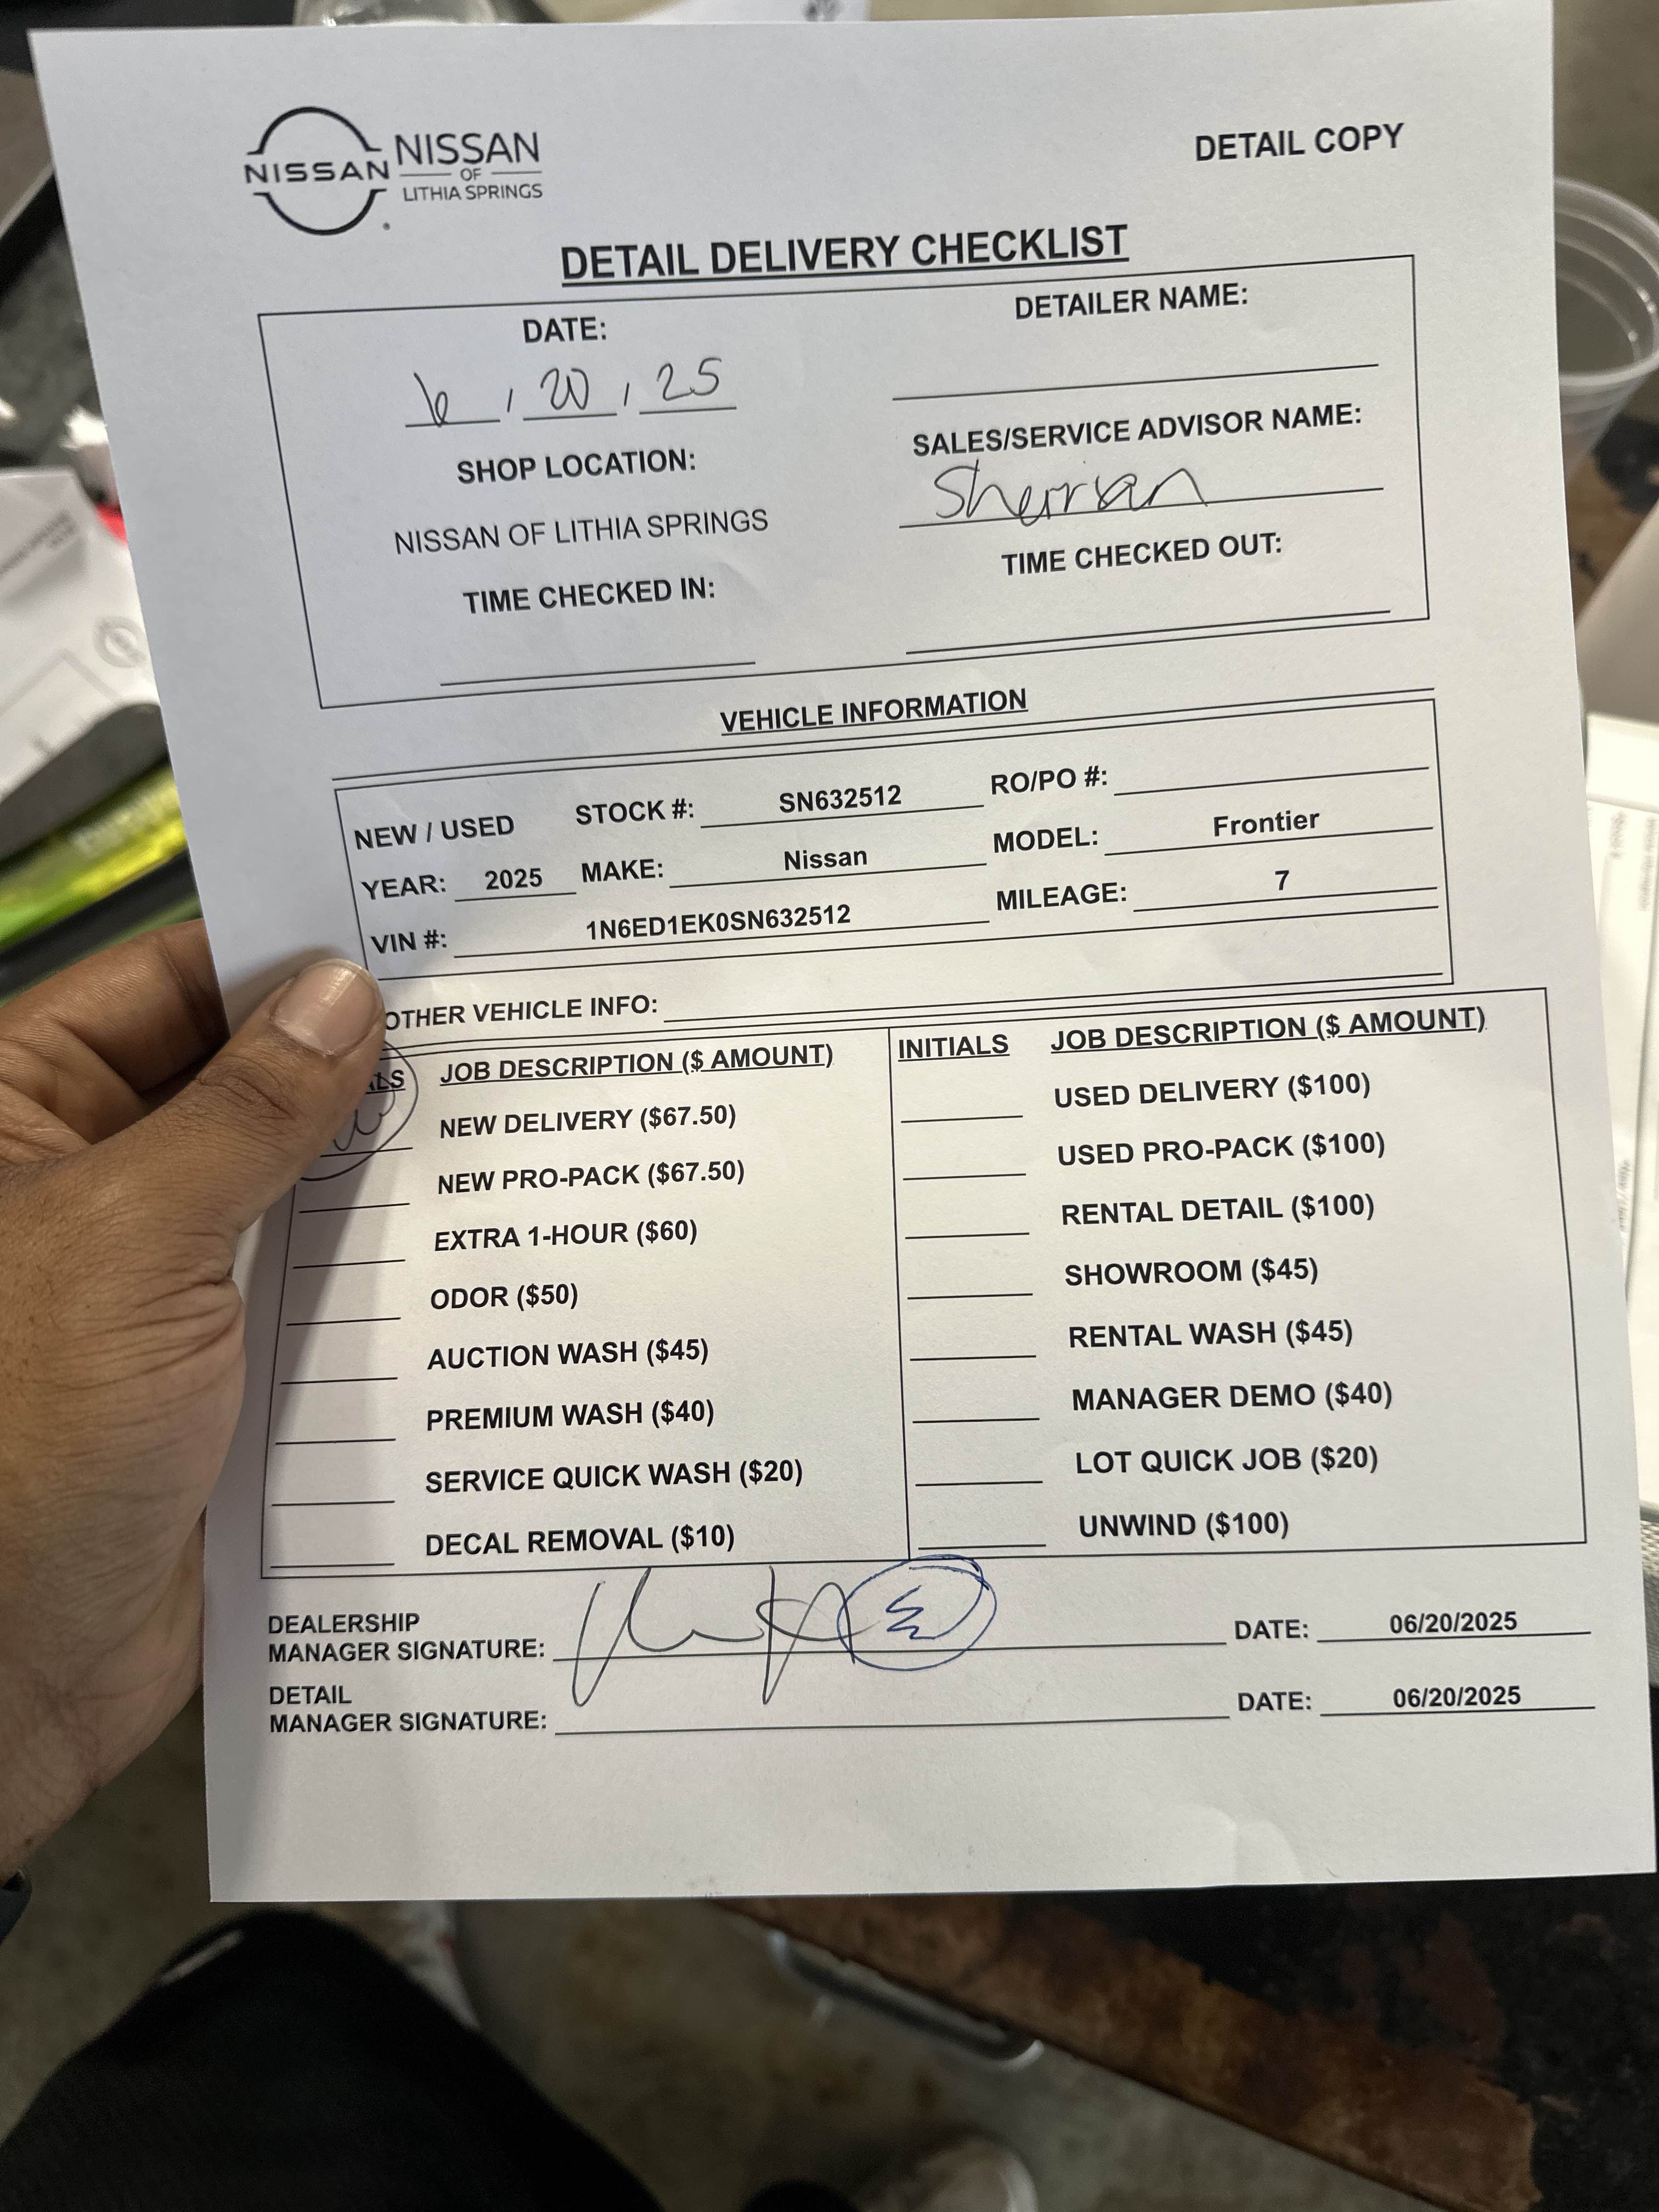 NISSAN
NISSAN
OF
LITHIA SPRINGS
DETAIL COPY
DETAIL DELIVERY CHECKLIST
DATE:
6 / 20 / 25
DETAILER NAME:
SHOP LOCATION:
NISSAN OF LITHIA SPRINGS
SALES/SERVICE ADVISOR NAME:
Sherrian
TIME CHECKED IN:
TIME CHECKED OUT:
VEHICLE INFORMATION
NEW / USED STOCK #: SN632512 RO/PO #:
YEAR: 2025 MAKE: Nissan MODEL: Frontier
VIN #: 1N6ED1EK0SN632512 MILEAGE: 7
OTHER VEHICLE INFO:
JOB DESCRIPTION ($ AMOUNT)
NEW DELIVERY ($67.50)
NEW PRO-PACK ($67.50)
EXTRA 1-HOUR ($60)
ODOR ($50)
AUCTION WASH ($45)
PREMIUM WASH ($40)
SERVICE QUICK WASH ($20)
DECAL REMOVAL ($10)
INITIALS JOB DESCRIPTION ($ AMOUNT)
USED DELIVERY ($100)
USED PRO-PACK ($100)
RENTAL DETAIL ($100)
SHOWROOM ($45)
RENTAL WASH ($45)
MANAGER DEMO ($40)
LOT QUICK JOB ($20)
UNWIND ($100)
DEALERSHIP
MANAGER SIGNATURE: DATE: 06/20/2025
DETAIL
MANAGER SIGNATURE: DATE: 06/20/2025